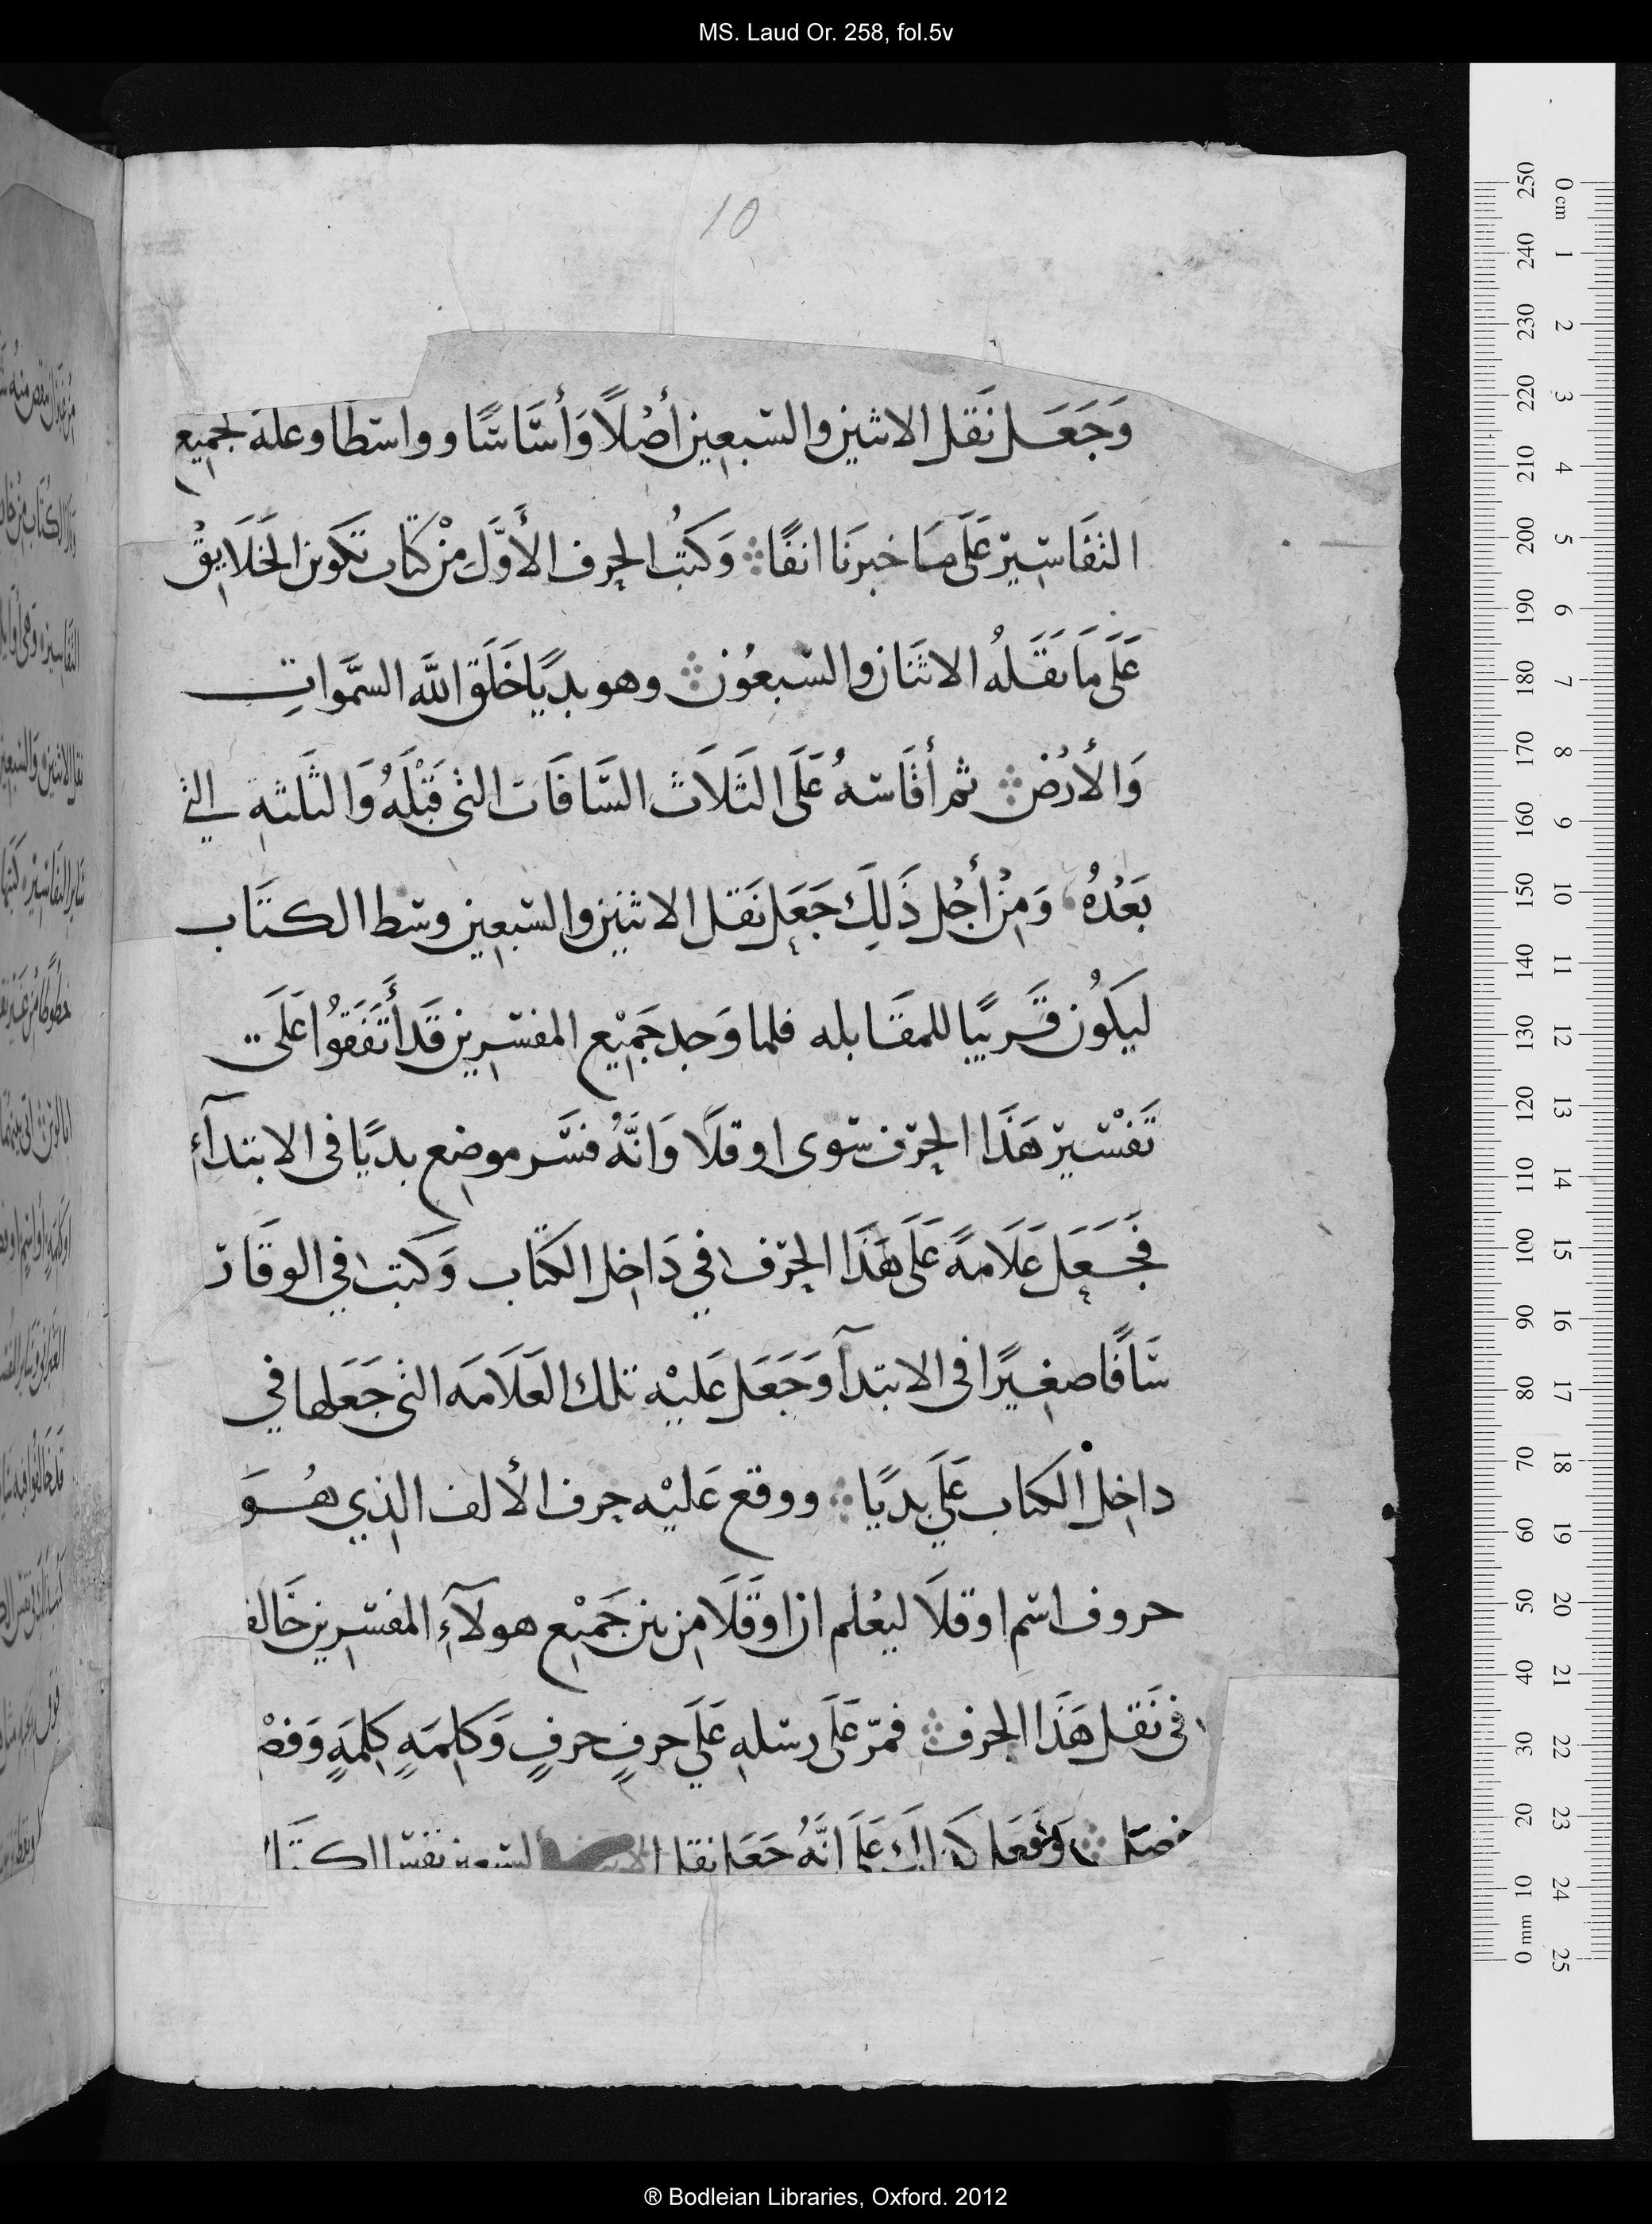 MS. Laud Or. 258, fol.5v
10
وَجَعَل نَقل الاثنين والسبعين أصْلاً وَأسَاسًا وواسطا وعلة لجميع
التفَاسِير عَلَى مَا خبرنَا انفًا وَكَتبُ الحرف الأوَّل مِنْ كتاب تكَوين الخَلَايِقْ
عَلَى مَا نَقَلهُ الاثنَان والسَبعُون وهو بديًا خَلَق اللَّه السمَّواتِ
وَالأرْضْ ثم أقَاسَهُ عَلَى الثَلَاث السَافَات التي قَبْلَهُ وَالثَلثةِ التي
بَعْدُهُ وَمِنْ أجْل ذَلِكَ جَعَل نَقل الاثنين والسبعين وسط الكتَاب
ليَكُون قَريبًا للمقَابله فلما وَجد جَمِيْع المفسرين قَد أتَفَقوُا عَلَى
تَفْسير هَذَا الحرف سَوى اوقلَا وَانَّهُ فسَّر موضع بديًا في الابتدآءِ
فجَعَل عَلَامةً عَلَى هَذَا الحرف في دَاخِل الكتَاب وَكَتب في الوقَار
سَافًا صغِيرًا في الابتدآ وَجَعَل عَليْه تلك العَلَامَه التي جَعَلها في
داخِلْ الكتاب عَلَى بديًا ووقع عَليْه حرف الألف الذِي هُوَ
حروف اسْم اوقلَا ليعْلم ان اوقَلَا مِن بين جَمِيْع هولآءِ المفسرين خَالف
في نَقل هَذَا الحرف فمرّ عَلَى رسله عَلَى حرفٍ حرفٍ وَكلِمَةٍ كِلمَةٍ وَفصْ
فصل كذلك عَلَى انَّهُ جَعَل نقل السبعين نفس الكتَا
0 cm 1 2 3 4 5 6 7 8 9 10 11 12 13 14 15 16 17 18 19 20 21 22 23 24 25
250 240 230 220 210 200 190 180 170 160 150 140 130 120 110 100 90 80 70 60 50 40 30 20 10 0 mm
® Bodleian Libraries, Oxford. 2012